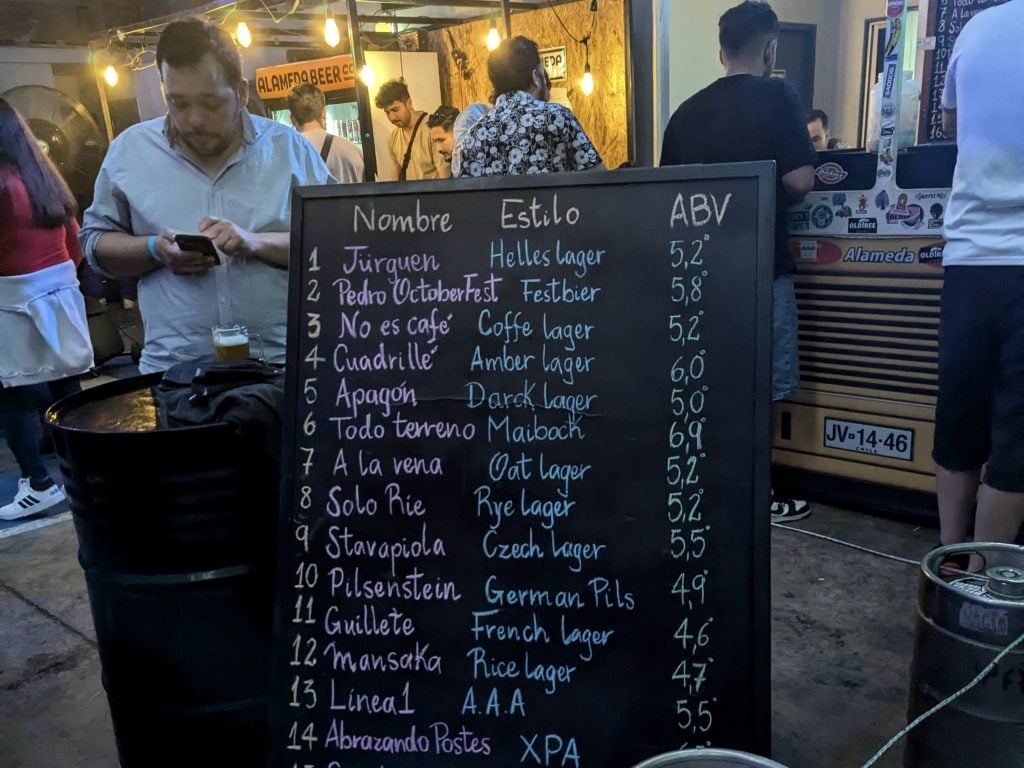 ALAMEDA BEER CO
Nombre Estilo ABV
1 Jürguen Helles lager 5,2°
2 Pedro OctoberFest Festbier 5,8°
3 No es café Coffe lager 5,2°
4 Cuadrillé Amber lager 6,0°
5 Apagón Darck Lager 5,0°
6 Todo terreno Maibock 6,9°
7 A la vena Oat lager 5,2°
8 Solo Rie Rye lager 5,2°
9 Stavapiola Czech lager 5,5°
10 Pilsenstein German Pils 4,9°
11 Guillete French lager 4,6°
12 Mansaka Rice lager 4,7°
13 Línea 1 A.A.A 5,5°
14 Abrazando Postes XPA
Dickies
OLDTREE
Alameda
JV-14-46
CHILE